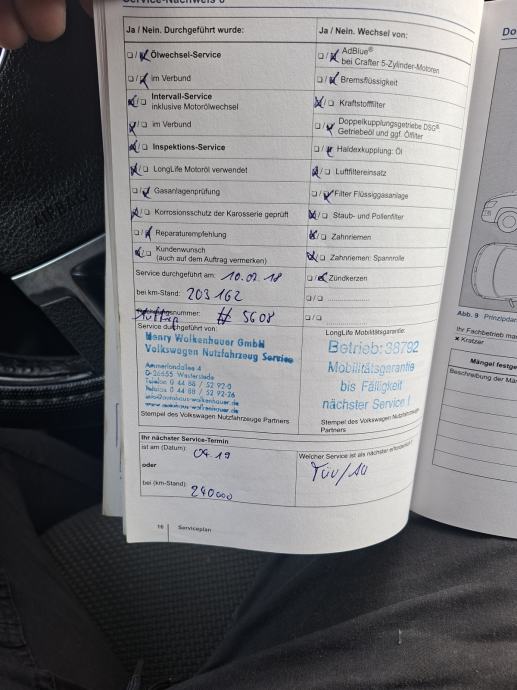 Service-Nachweis 6
Ja / Nein. Durchgeführt wurde:
Ja / Nein. Wechsel von:
Ölwechsel-Service
AdBlue®
bei Crafter 5-Zylinder-Motoren
im Verbund
Bremsflüssigkeit
Intervall-Service
inklusive Motorölwechsel
Kraftstofffilter
im Verbund
Doppelkupplungsgetriebe DSG®:
Getriebeöl und ggf. Ölfilter
Inspektions-Service
Haldexkupplung: Öl
LongLife Motoröl verwendet
Luftfiltereinsatz
Gasanlagenprüfung
Filter Flüssiggasanlage
Korrosionsschutz der Karosserie geprüft
Staub- und Pollenfilter
Reparaturempfehlung
Zahnriemen
Kundenwunsch
(auch auf dem Auftrag vermerken)
Zahnriemen: Spannrolle
Service durchgeführt am:
Zündkerzen
bei km-Stand: 203 162
# 5608
Service durchgeführt von:
LongLife Mobilitätsgarantie:
Henry Walkenhauer GmbH
Volkswagen Nutzfahrzeug Service
Ammerlandallee 4
D-26655 Westerstede
Telefon 0 44 88 / 52 92-0
Telefax 0 44 88 / 52 92-26
Betrieb: 38792
Mobilitätsgarantie
bis Fälligkeit
nächster Service !
Stempel des Volkswagen Nutzfahrzeuge Partners
Stempel des Volkswagen Nutzfahrzeuge
Partners
Ihr nächster Service-Termin
ist am (Datum): 04.19
oder
bei (km-Stand): 240000
TÜV/AU
16 Serviceplan
Do
Abb. 9 Prinzipdar
Ihr Fachbetrieb mar
x Kratzer
Mängel festge
Beschreibung der Mä